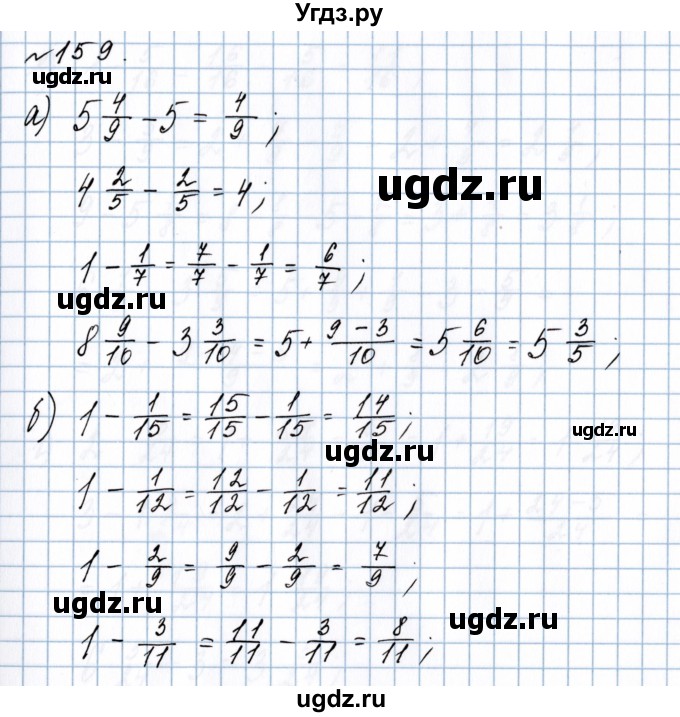 Угдз.ру
№159.
ugdz.ru
а) 5 4/9 - 5 = 4/9 ;
4 2/5 - 2/5 = 4;
ugdz.ru
1 - 1/7 = 7/7 - 1/7 = 6/7 ;
ugdz.ru
8 9/10 - 3 3/10 = 5 + (9 - 3)/10 = 5 6/10 = 5 3/5 ;
б) 1 - 1/15 = 15/15 - 1/15 = 14/15 ;
ugdz.ru
ugdz.ru
1 - 1/12 = 12/12 - 1/12 = 11/12 ;
1 - 2/9 = 9/9 - 2/9 = 7/9 ;
ugdz.ru
ugdz.ru
1 - 3/11 = 11/11 - 3/11 = 8/11 ;
ugdz.ru